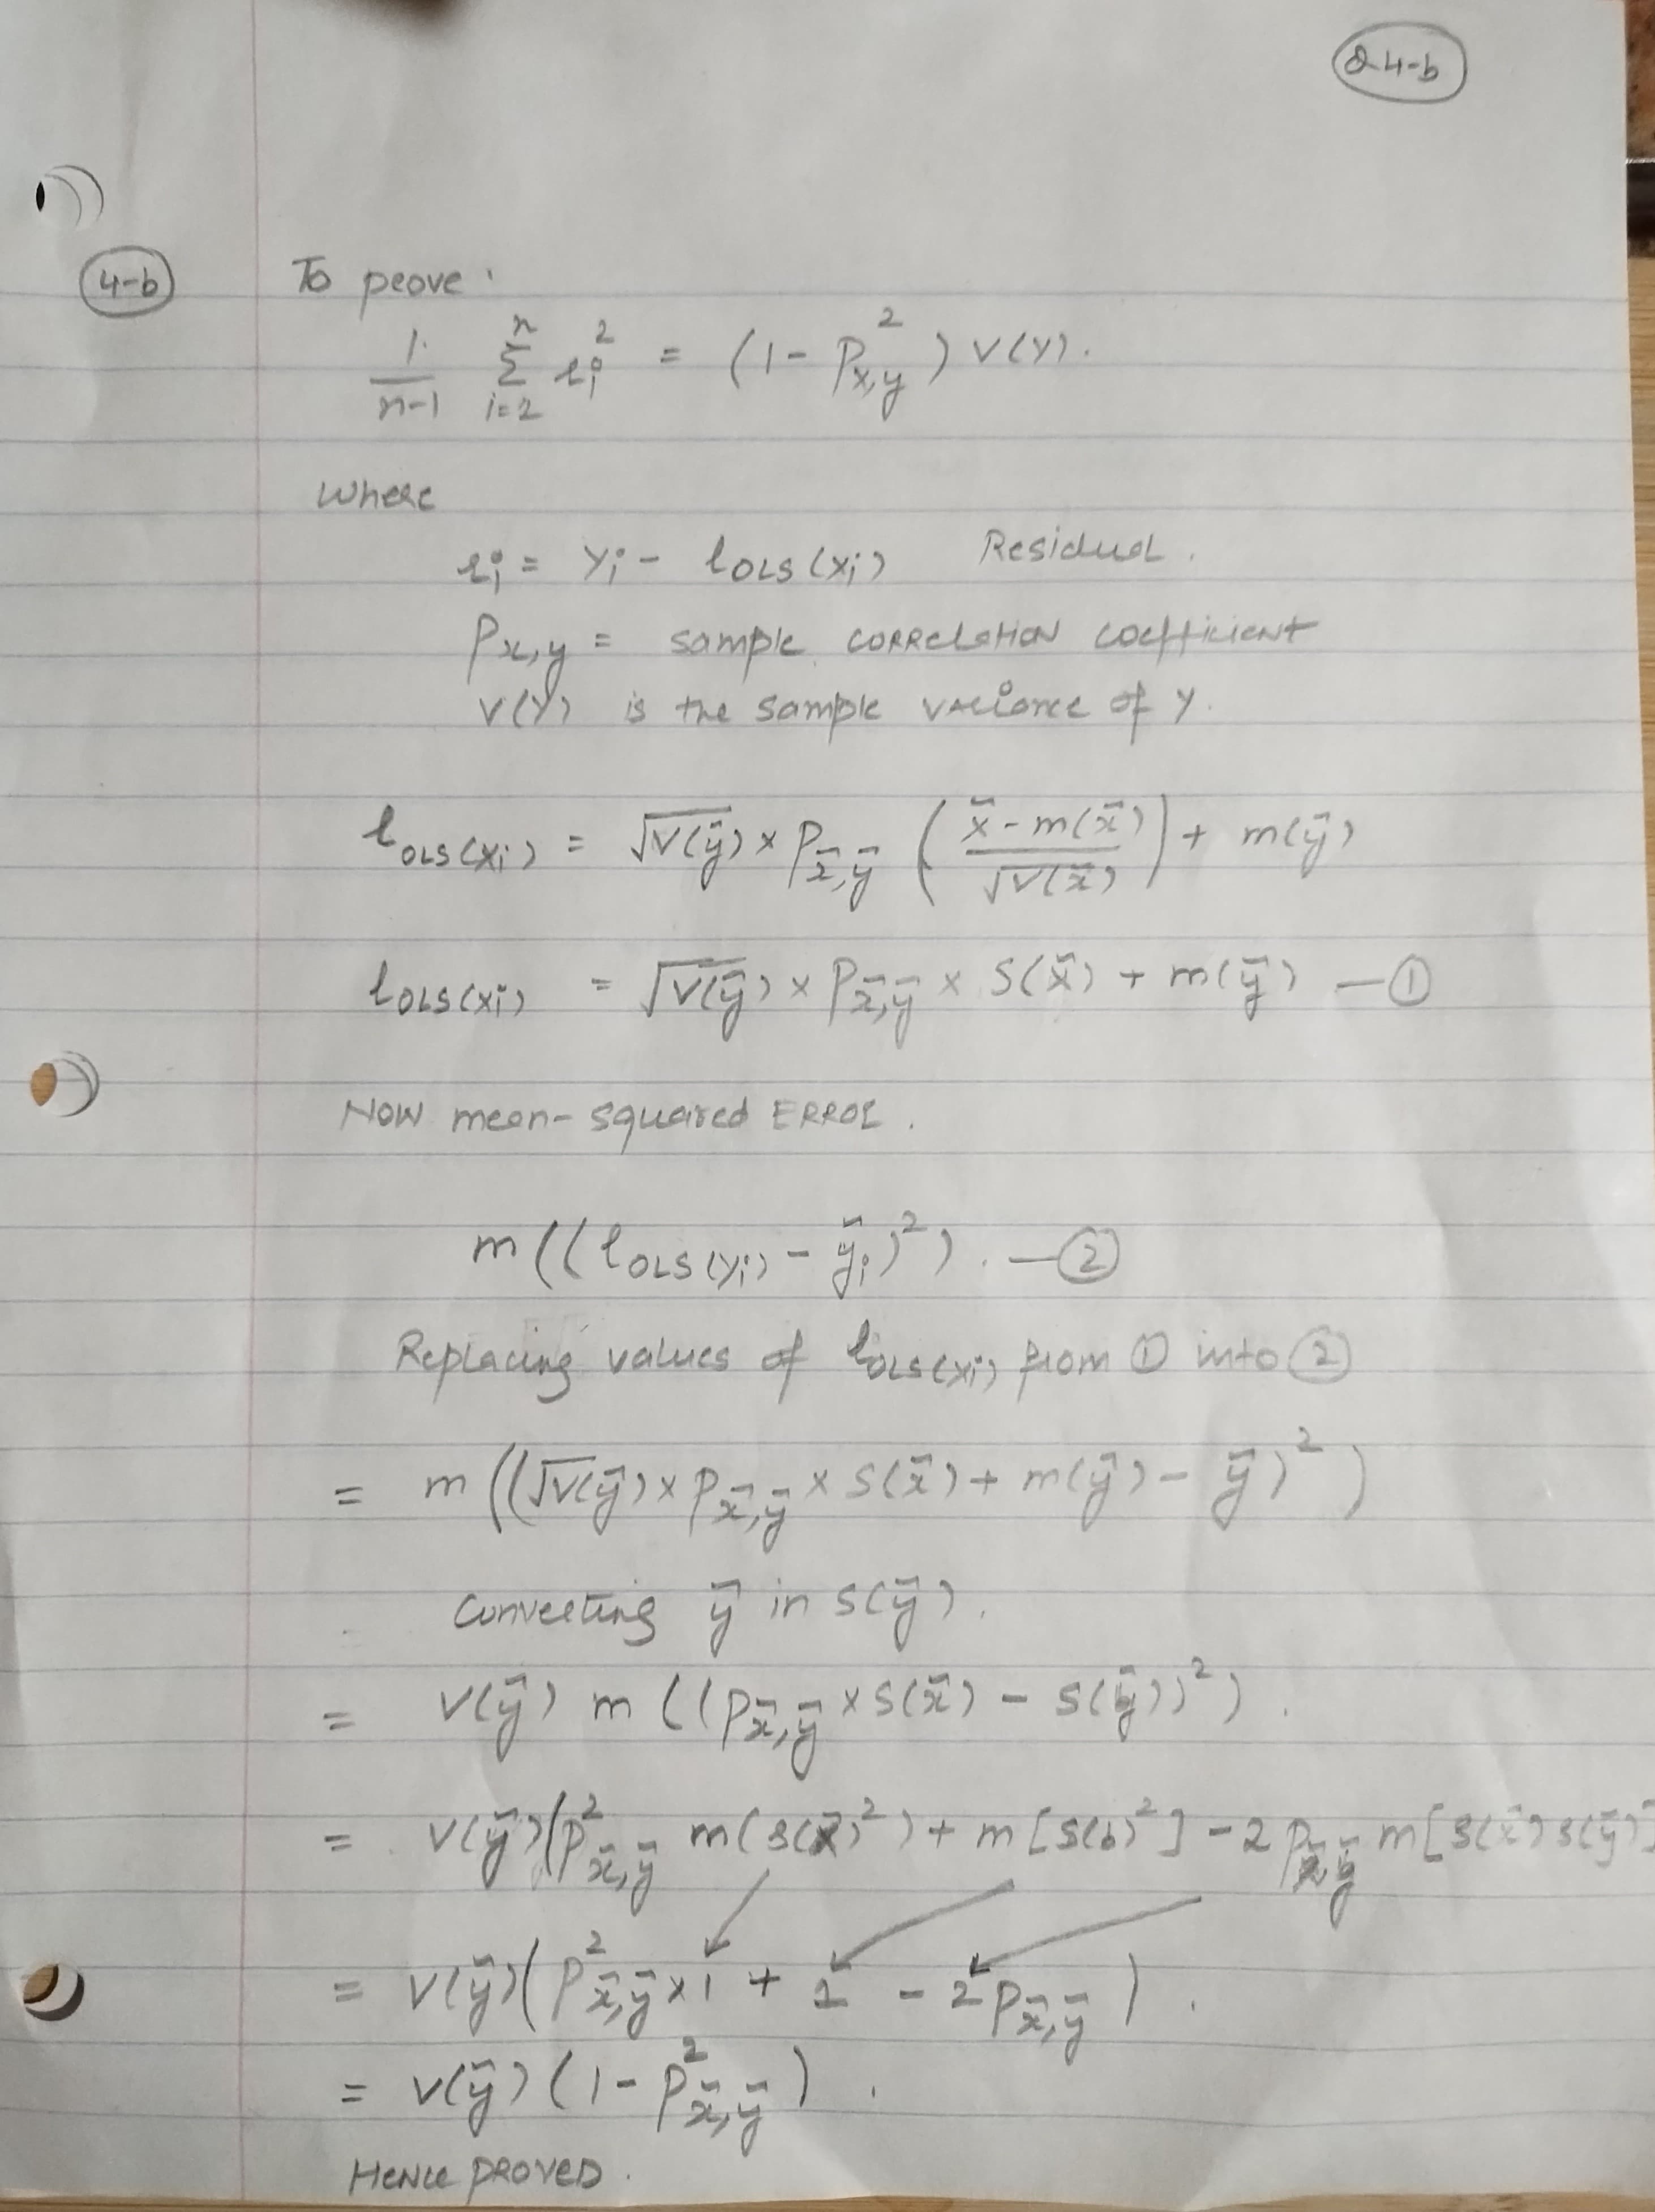 Q4-b
4-b To prove:
1/(n-1) Σ_{i=2}^{n} r_i² = (1 - ρ²_{x,y}) V(Y).
Where
r_i = Y_i - l_OLS(x_i) Residual.
ρ_{x,y} = sample correlation coefficient
V(Y) is the sample variance of Y.
l_OLS(x_i) = √V(ỹ) × ρ_{x̃,ỹ} ( (x̃ - m(x̃)) / √V(x̃) ) + m(ỹ)
l_OLS(x_i) = √V(ỹ) × ρ_{x̃,ỹ} × S(x̃) + m(ỹ) — ①
Now mean-squared ERROR.
m((l_OLS(y_i) - ỹ_i)²). — ②
Replacing values of l_OLS(x_i) from ① into ②
= m((√V(ỹ) × ρ_{x̃,ỹ} × S(x̃) + m(ỹ) - ỹ)²)
Converting ỹ in S(ỹ).
= V(ỹ) m((ρ_{x̃,ỹ} × S(x̃) - S(ỹ))²).
= V(ỹ)(ρ²_{x̃,ỹ} m(S(x̃)²) + m[S(b)²] - 2 ρ_{x̃,ỹ} m[S(x̃) S(ỹ)]
= V(ỹ)(ρ²_{x̃,ỹ} × 1 + 1 - 2ρ_{x̃,ỹ}).
= V(ỹ)(1 - ρ²_{x̃,ỹ}).
Hence PROVED.